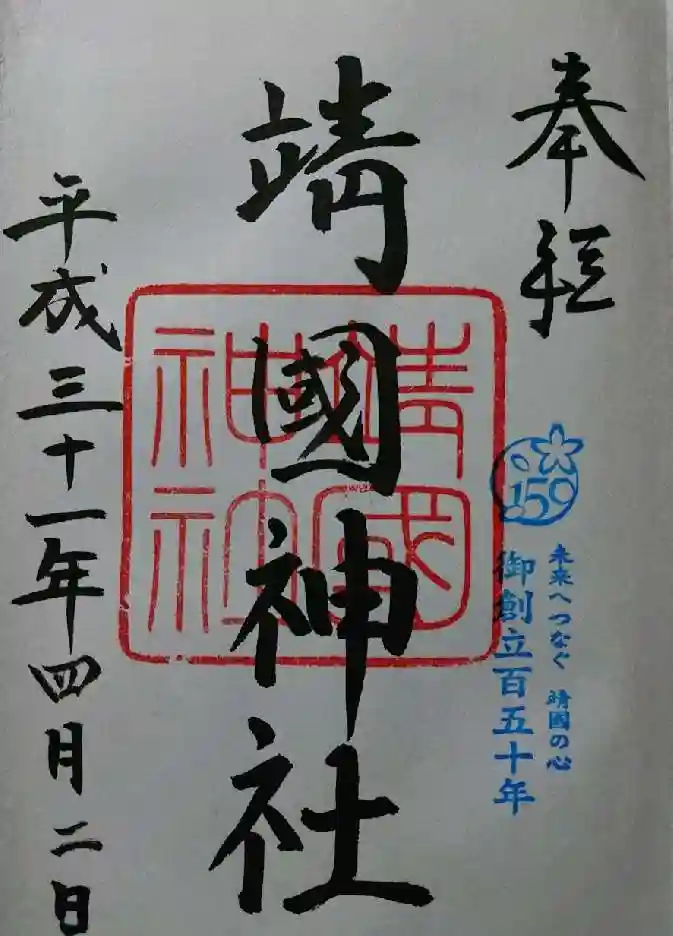 奉拝
150
未来へつなぐ 靖國の心
御創立百五十年
靖國神社
靖國
神社
平成三十一年四月二日